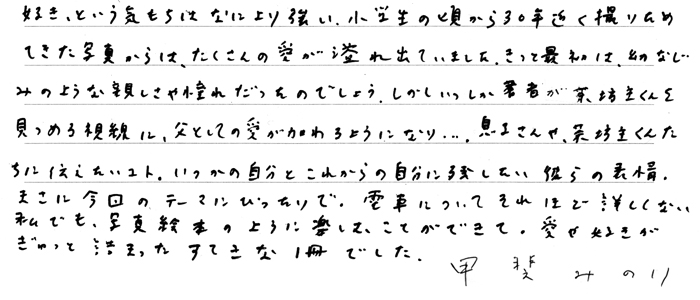 好き、という気もちはなにより強い。小学生の頃から30年近く撮りため
てきた写真からは、たくさんの愛が溢れ出ていました。きっと最初は、幼なじ
みのような親しさや憧れだったのでしょう。しかしいつしか著者が茶坊主くんを
見つめる視線に、父としての愛が加わるようになり…。息子さんや、茶坊主くんた
ちに伝えたいコト。いつかの自分とこれからの自分に残したい彼らの表情。
まさに今回のテーマにぴったりで。電車についてそれほど詳しくない
私でも、写真絵本のように楽しむことができて。愛や好きが
ぎゅっと詰まったすてきな1冊でした。
甲斐みのり